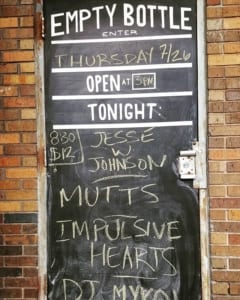 EMPTY BOTTLE
ENTER
THURSDAY 7/26
OPEN AT 5PM
TONIGHT:
830 JESSE
$12 W
JOHNSON
MUTTS
IMPULSIVE
HEARTS
DJ